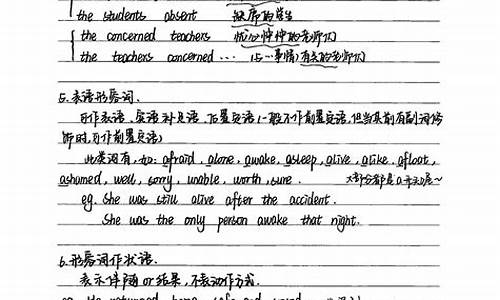 the students absent 缺席的学生
the concerned teachers 忧心忡忡的老师们
the teachers concerned … (与…事情)有关的老师们
5. 表语形容词.
可作表语、宾语补足语、后置定语(一般不作前置定语,但当其前有副词修
饰时,可作前置定语)
此类词有,如: afraid, alone, awake, asleep, alive, alike, afloat,
ashamed, well, sorry, unable, worth, sure. 大部分都是a开头哦~
eg. She was still alive after the accident.
She was the only person awake that night.
6. 形容词作状语.
表示伴随 or 结果, 不表动作方式.
eg. He returned home safe and